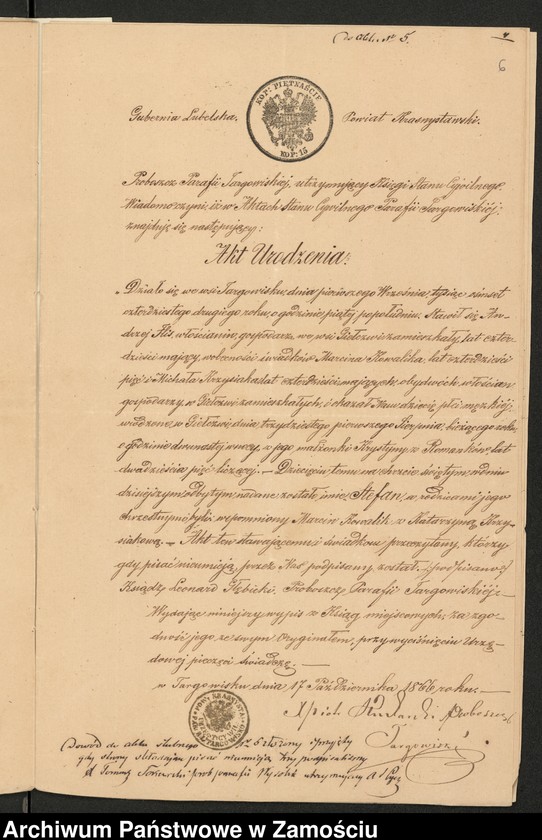 Do akt. Nr 5.
4
6
Gubernia Lubelska. Powiat Krasnystawski.
KOP: PIĘTNAŚCIE
KOP: 15
Proboszcz Parafii Targowiskiéj, utrzymujący Księgi Stanu Cywilnego,
Wiadomo czyni, iż w Aktach Stanu Cywilnego Parafii Targowiskiéj
znajduje się następujący:
Akt Urodzenia:
Działo się we wsi Targowisku, dnia pierwszego Września, tysiąc ośmset
czterdziestego drugiego roku, o godzinie piątej popołudniu. Stawił się An-
drzej Flis, włościanin, gospodarz we wsi zamieszkały, lat czter-
dzieści mający, w obecności świadków Marcina Kowalika, lat czterdzieści
pięć i Michała Krzysiaka lat czterdzieści mających, obydwóch włościan
gospodarzy, w zamieszkałych, i okazał Nam dziecię płci męzkiéj,
urodzone w dnia trzydziestego pierwszego Sierpnia, bieżącego roku,
o godzinie dwunastej w nocy, z jego małżonki Krystyny, z Romanków, lat
dwadzieścia pięć liczącej. – Dziecięciu temu na chrzcie świętym, w dniu
dzisiejszym odbytym, nadane zostało imie, Stefan, a rodzicami jego
chrzestnymi byli: wspomniony Marcin Kowalik, z Katarzyną Krzy-
siakową. – Akt ten stawającemu i świadkom przeczytany, którzy
gdy pisać nieumieją, przez Nas podpisany, został. (podpisano)
Ksiądz Leonard Proboszcz Parafii Targowiskiéj. –
Wydając niniejszy wypis z Ksiąg miejscowych, za zgo-
dność jego ze swym oryginałem, przy wyciśnięciu Urzę-
dowej pieczęci świadczę. –
w Targowisku dnia 17 Października 1866 roku. –
X Piotr Proboszcz
Targowiski
Dowód do aktu ślubnego Nr 5 złożony i przyjęty
gdy strony obowiązane pisać nieumieją podpisaliśmy
X Tomasz prob. parafii Wysokie utrzymujący A
Archiwum Państwowe w Zamościu